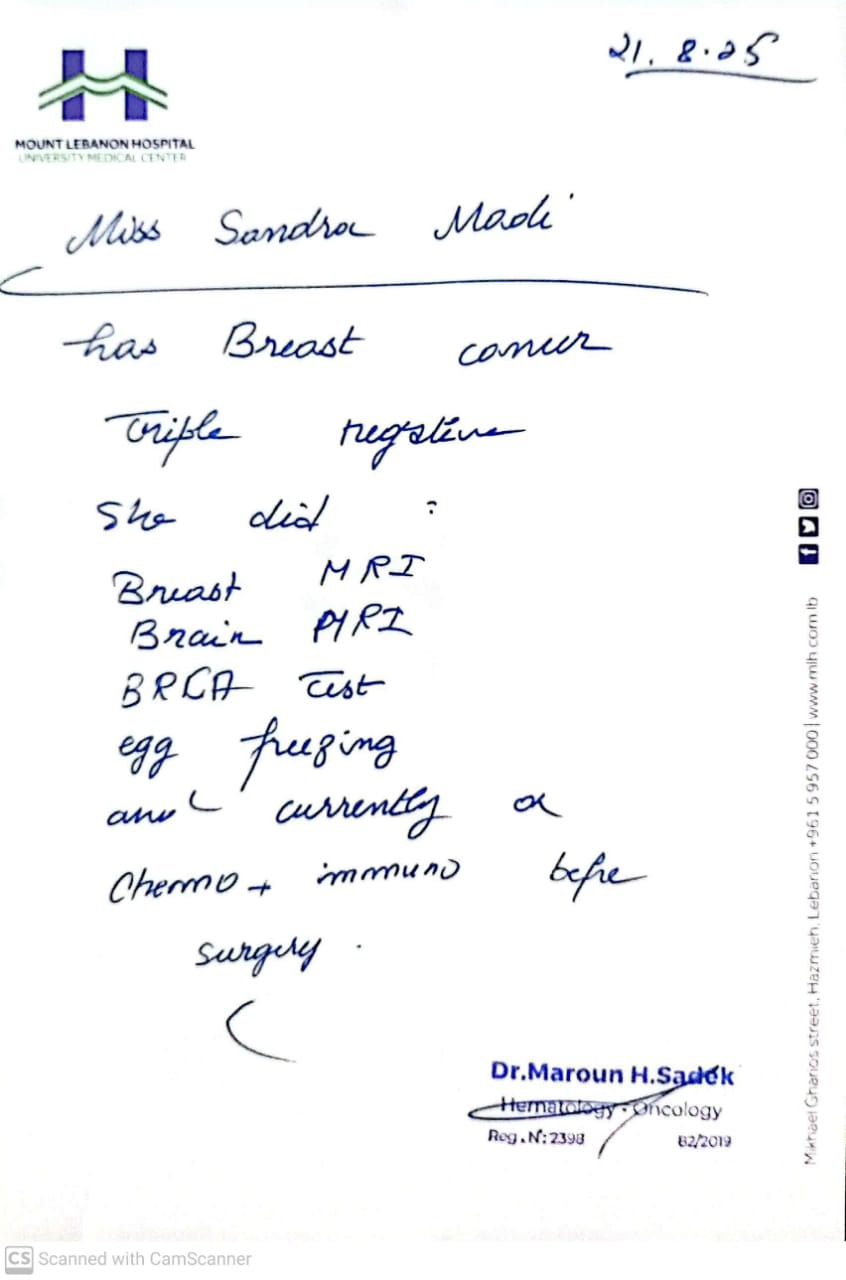 21.8.25
MOUNT LEBANON HOSPITAL
UNIVERSITY MEDICAL CENTER
Miss Sandra Madi
has Breast cancer
Triple negative
She did :
Breast MRI
Brain MRI
BRCA Test
egg freezing
and currently
Chemo + immuno before
surgery.
Dr.Maroun H.Sadek
Hematology - Oncology
Reg.N:2398 82/2019
Mikhael Ghanos street, Hazmieh, Lebanon +961 5 957 000 | www.mlh.com.lb
CS Scanned with CamScanner